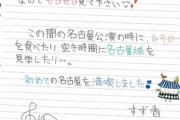 見て下さい
この間の名古屋公演の時に、
を食べたり、空き時間に名古屋城を
見学したり…。
初めての名古屋を満喫しました
すず香